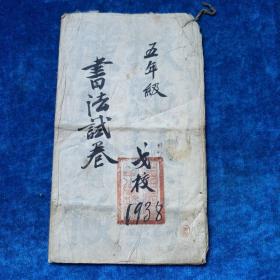 五年級
書法試卷
戈校
1938